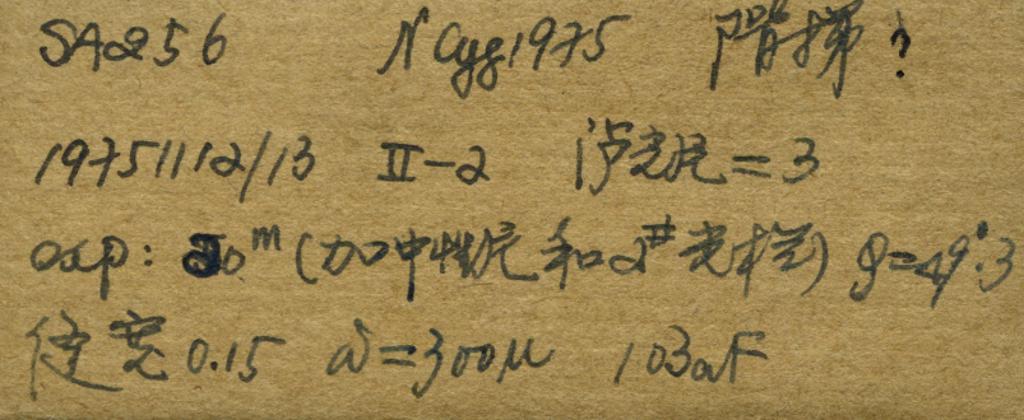 SA256 N Cyg 1975 阶梯?
19751112/13 II-2 滤光片=3
exp: 20ᵐ (加中性片和2#光栏) φ=49°.3
缝宽 0.15 ω=300μ 103aF